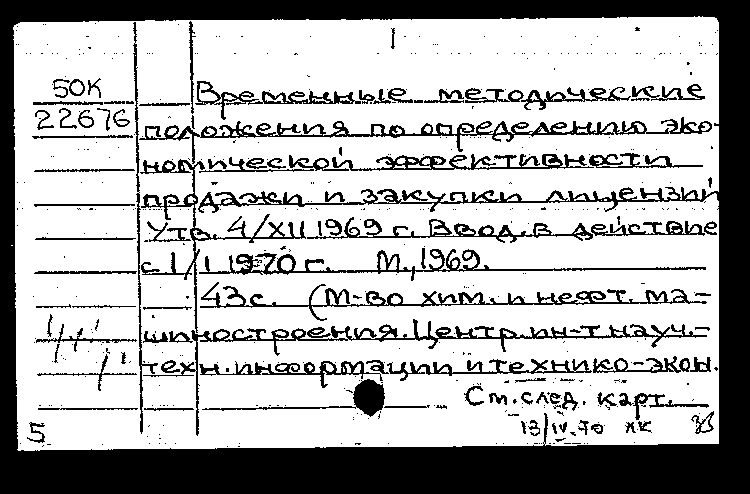 50К
22676
Временные методические
положения по определению эко-
номической эффективности
продажи и закупки лицензий
Утв. 4/XII 1969 г. Ввод. в действие
с 1/I 1970 г. М., 1969.
43с. (М-во хим. и нефт. ма-
шиностроения. Центр. ин-т науч.-
техн. информации и технико-экон.
См. след. карт.
13/IV-70
5